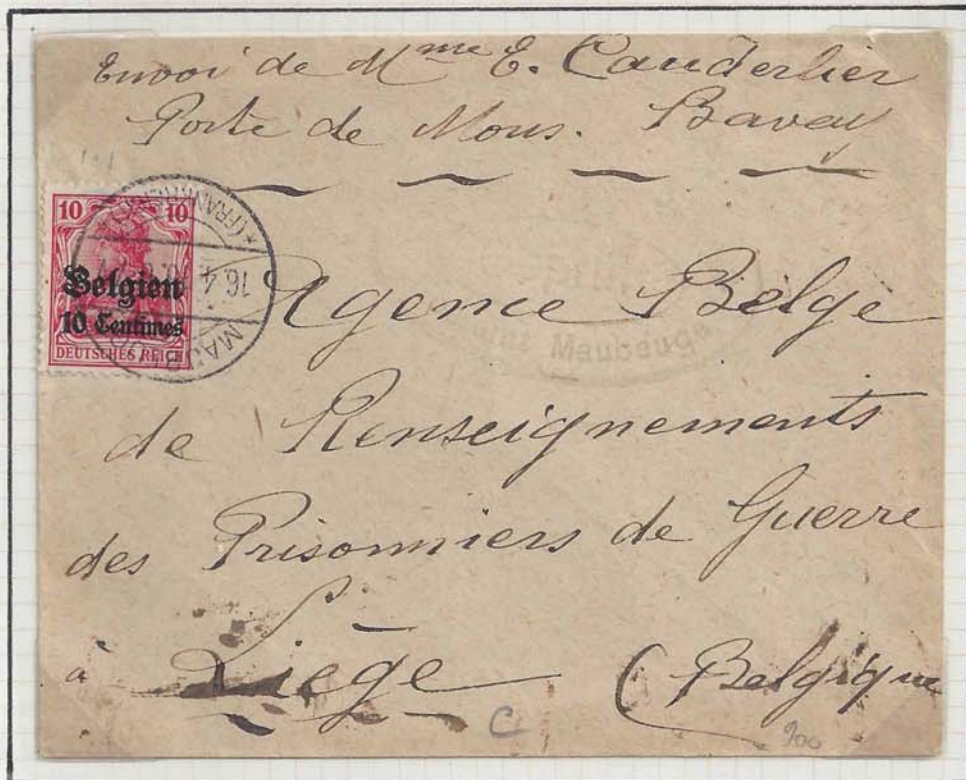 Envoi de Mme E. Cauderlier
Porte de Mons. Bavay
10 10
Belgien
10 Centimes
DEUTSCHES REICH
(FRANKREICH)
16.4
MAUBEUGE
Agence Belge
Maubeuge
de Renseignements
des Prisonniers de Guerre
à Liège (Belgique
C
900